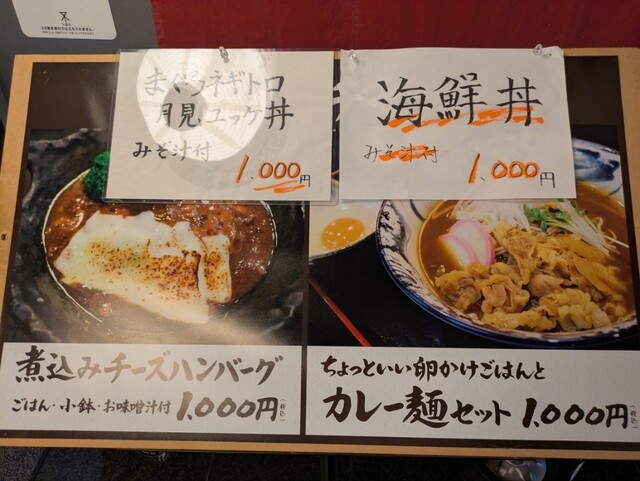 まぐろネギトロ
月見ユッケ丼
みそ汁付
1,000円
海鮮丼
みそ汁付
1,000円
煮込みチーズハンバーグ
ごはん・小鉢・お味噌汁付 1,000円(税込)
ちょっといい卵かけごはんと
カレー麺セット 1,000円(税込)